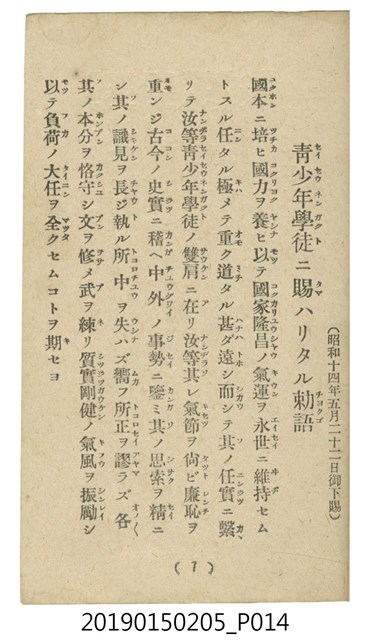 靑少年學徒ニ賜ハリタル勅語
(昭和十四年五月二十二日御下賜)
國本ニ培ヒ國力ヲ養ヒ以テ國家隆昌ノ氣運ヲ永世ニ維持セム
トスル任タル極メテ重ク道タル甚ダ遠シ而シテ其ノ任實ニ繫
リテ汝等靑少年學徒ノ雙肩ニ在リ汝等其レ氣節ヲ尙ビ廉恥ヲ
重ンジ古今ノ史實ニ稽ヘ中外ノ事勢ニ鑒ミ其ノ思索ヲ精ニ
シ其ノ識見ヲ長ジ執ル所中ヲ失ハズ嚮フ所正ヲ謬ラズ各
其ノ本分ヲ恪守シ文ヲ修メ武ヲ練リ質實剛健ノ氣風ヲ振勵シ
以テ負荷ノ大任ヲ全クセムコトヲ期セヨ
(7)
20190150205_P014